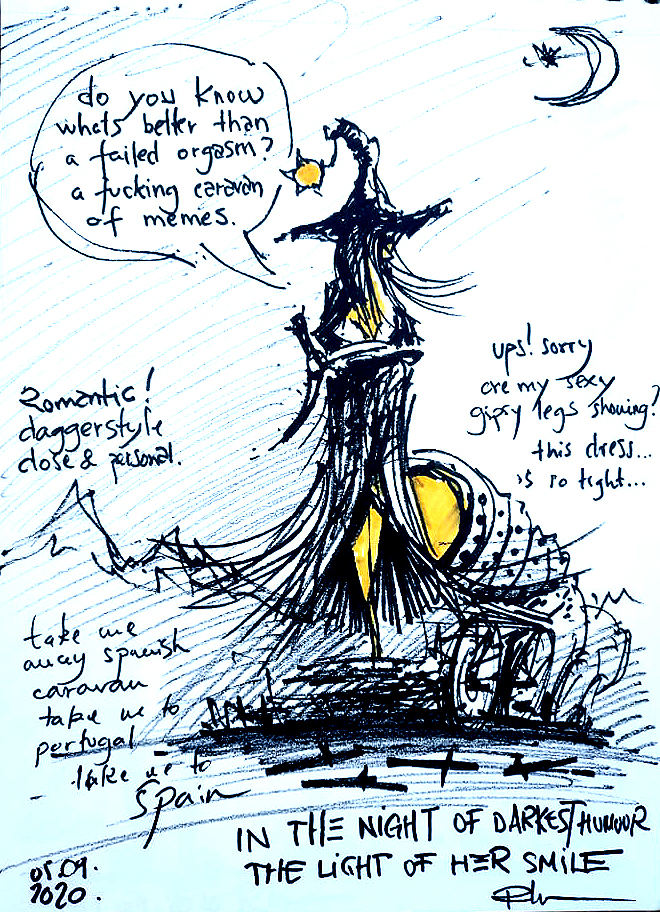 do you know
whats better than
a failed orgasm?
a fucking caravan
of memes.
ups! sorry
are my sexy
gipsy legs showing?
this dress...
is so tight...
Romantic!
daggerstyle
close & personal.
take me
away spanish
caravan
take me to
portugal
take me to
Spain
IN THE NIGHT OF DARKEST HUMOUR
THE LIGHT OF HER SMILE
05.09.
2020.